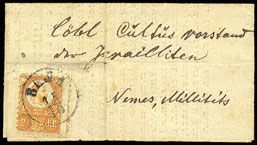 Löbl Cultus vorstand
der Israilliten
Nemes, Millitits
2 KR